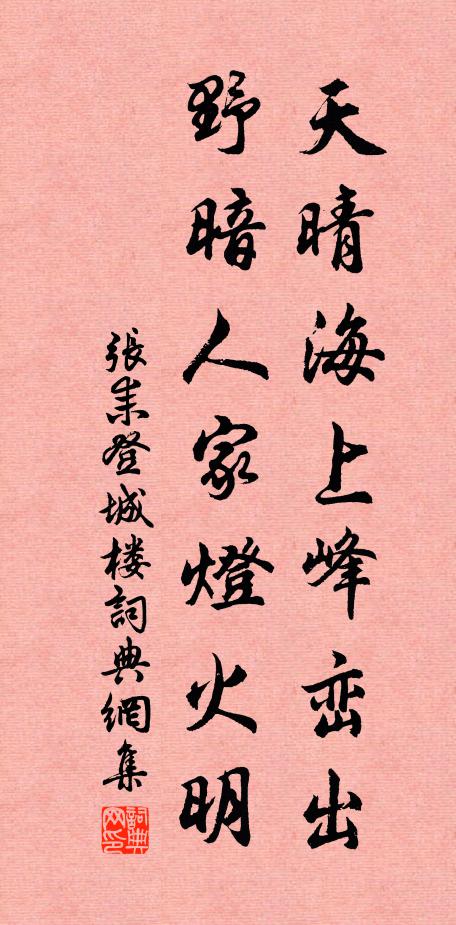 天晴海上峰峦出
野暗人家燈火明
張耒登城楼詞典網集
詞典
网印